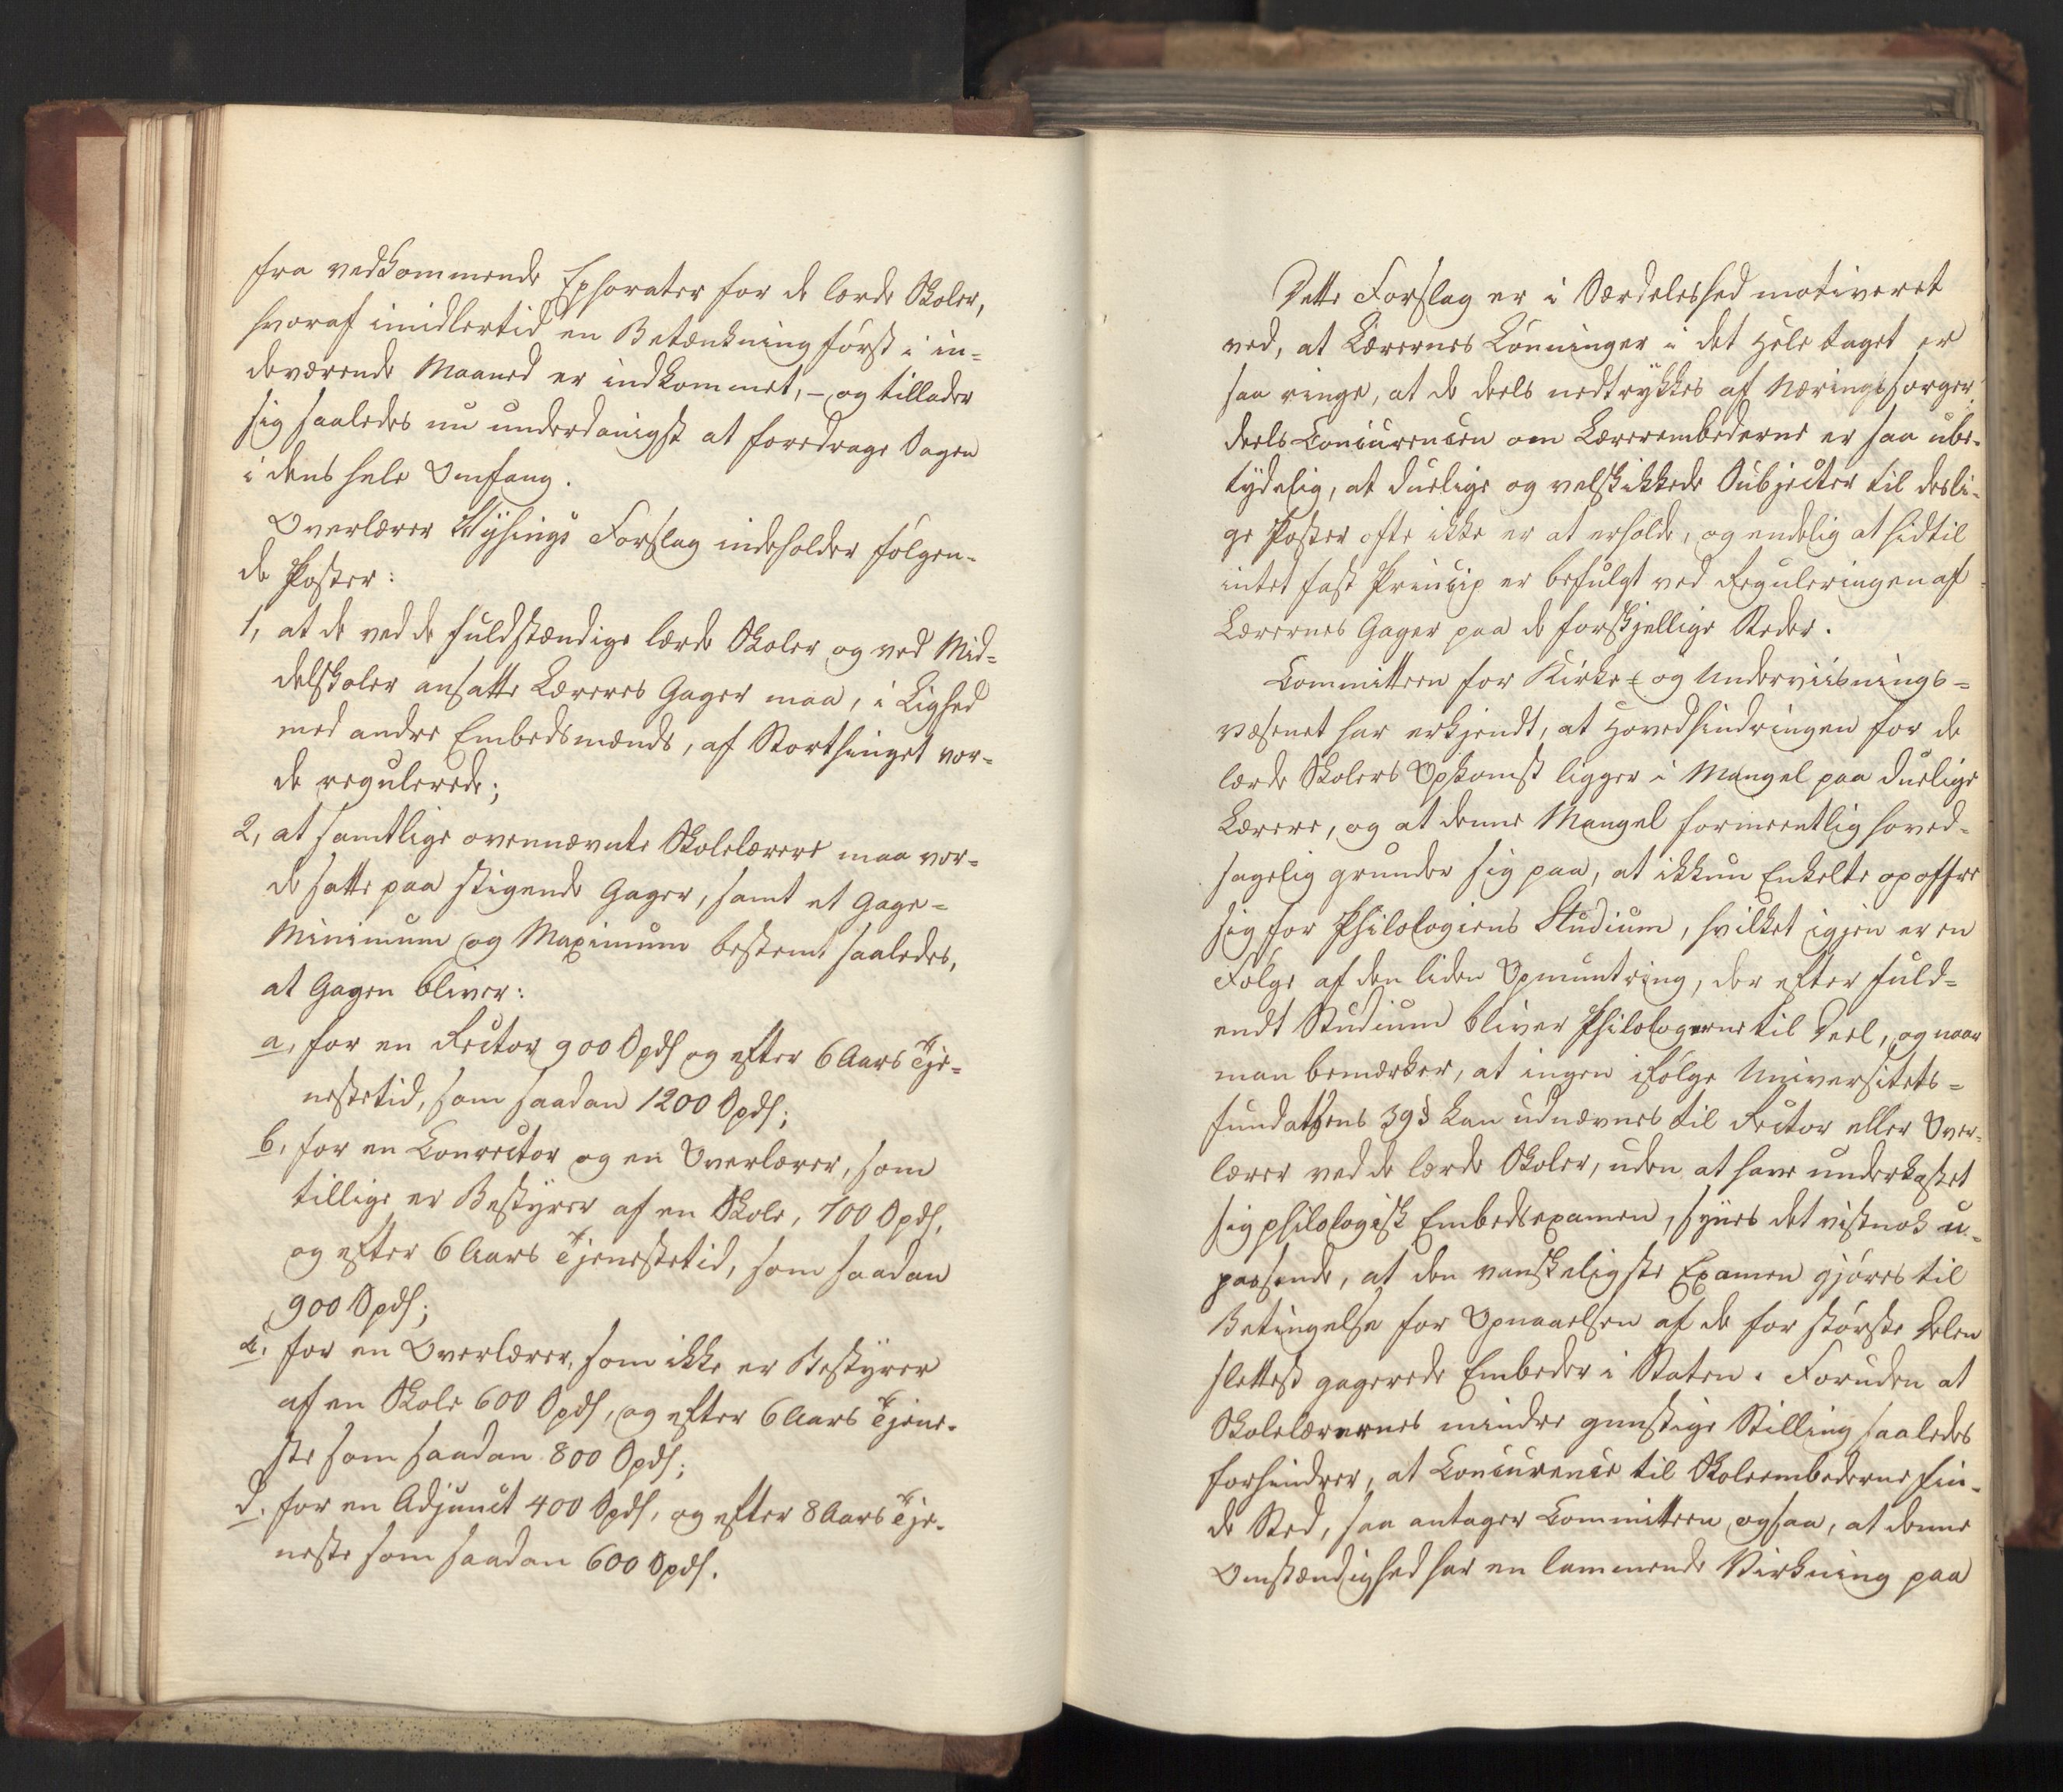 fra vedkommende Ephorater for de lærde Skoler,
hvoraf imidlertid en Betænkning først i in-
deværende Maaned er indkommet, – og tillader
sig saaledes nu underdanigst at foredrage Sagen
i dens hele Omfang.
Overlærer Thysings Forslag indeholder følgen-
de Poster:
1, at de ved de fuldstændige lærde Skoler og ved Mid-
delskoler ansatte Læreres Gager maa, i Lighed
med andre Embedsmænds, af Storthinget vor-
de regulerede;
2, at samtlige ovennævnte Skolelærere maa vor-
de satte paa stigende Gager, samt et Gage-
Minimum og Maximum bestemt saaledes,
at Gagen bliver:
a, for en Rector 900 Spdl og efter 6 Aars Tje-
nestetid, som saadan 1200 Spdl;
b, for en Conrector og en Overlærer, som
tillige er Bestyrer af en Skole, 700 Spdl,
og efter 6 Aars Tjenestetid, som saadan
900 Spdl;
c, for en Overlærer, som ikke er Bestyrer
af en Skole 600 Spdl, og efter 6 Aars Tjene-
ste som saadan 800 Spdl;
d, for en Adjunct 400 Spdl, og efter 8 Aars Tje-
neste som saadan 600 Spdl.
Dette Forslag er i Særdeleshed motiveret
ved, at Lærernes Lønninger i det Hele taget er
saa ringe, at de deels nedtrykkes af Næringssorger,
deels Concurencen om Lærerembederne er saa ube-
tydelig, at duelige og velskikkede Subjecter til desli-
ge Poster ofte ikke er at erholde, og endelig at hidtil
intet fast Princip er befulgt ved Reguleringen af
Lærernes Gager paa de forskjellige Steder.
Committeen for Kirke- og Underviisnings-
væsenet har erkjendt, at Hovedhindringen for de
lærde Skolers Opkomst ligger i Mangel paa duelige
Lærere, og at denne Mangel formeentlig hoved-
sagelig grunder sig paa, at ikkun Enkelte opoffre
sig for Philologiens Studium, hvilket igjen er en
Følge af den liden Opmuntring, der efter fuld-
endt Studium bliver Philologerne til Deel, og naar
man bemærker, at ingen ifølge Universitets-
fundatsens 39§ kan udnævnes til Rector eller Over-
lærer ved de lærde Skoler, uden at have underkastet
sig philologisk Embedsexamen, synes det vistnok u-
passende, at den vanskeligste Examen gjøres til
Betingelse for Opnaaelsen af de for største Delen
slettest gagerede Embeder i Staten. Foruden at
Skolelærernes mindre gunstige Stilling saaledes
forhindrer, at Concurence til Skoleembederne fin-
de Sted, saa antager Committeen ogsaa, at denne
Omstændighed har en lammende Virkning paa